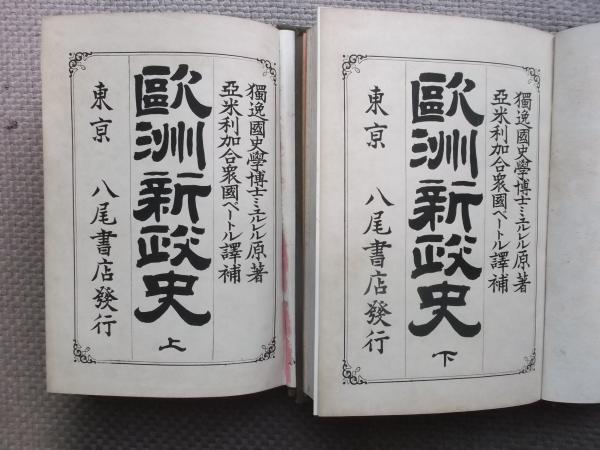 獨逸國史學博士ミユルレル原著
亞米利加合衆國ペートル譯補
歐洲新政史
上
東京 八尾書店發行
獨逸國史學博士ミユルレル原著
亞米利加合衆國ペートル譯補
歐洲新政史
下
東京 八尾書店發行